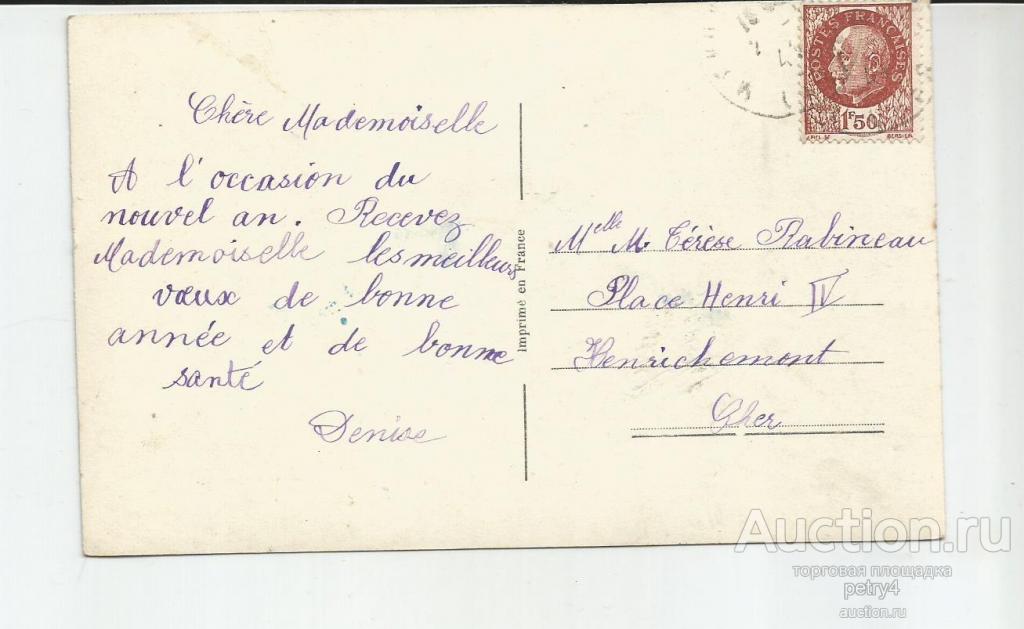 Chère Mademoiselle
A l'occasion du
nouvel an. Recevez
Mademoiselle les meilleurs
vœux de bonne
année et de bonne
santé
Denise
Imprimé en France
POSTES FRANÇAISES
1F50
BERSIER
Melle M. Térèse Rabineau
Place Henri IV
Henrichemont
Cher
Auction.ru
торговая площадка
petry4
auction.ru